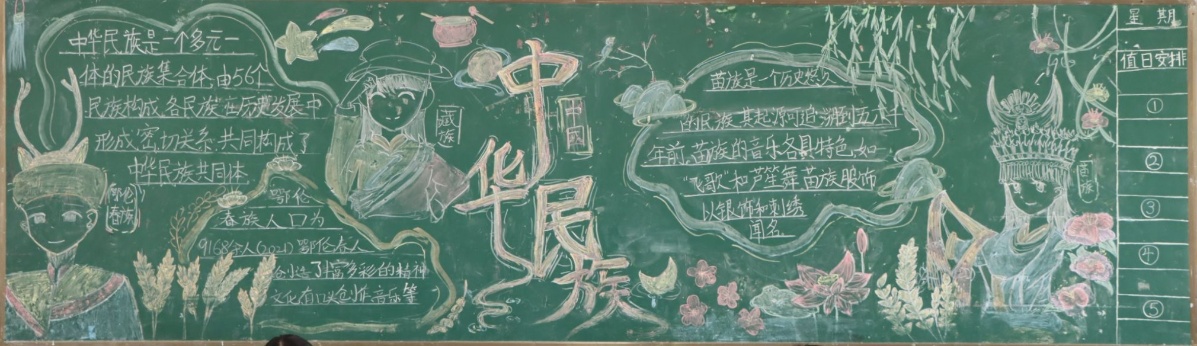 中华民族是一个多元一
体的民族集合体,由56个
民族构成,各民族在历史发展中
形成密切关系,共同构成了
中华民族共同体
鄂伦
春族
鄂伦
春族人口为
9168余人(2021)鄂伦春人
创造了丰富多彩的精神
文化有口头创作音乐等
藏族
中华民族
中国
苗族是一个历史悠久
的民族,其起源可追溯到五六千
年前,苗族的音乐各具特色,如
“飞歌”和芦笙舞苗族服饰
以银饰和刺绣
闻名
苗族
星期
值日安排
①
②
③
④
⑤